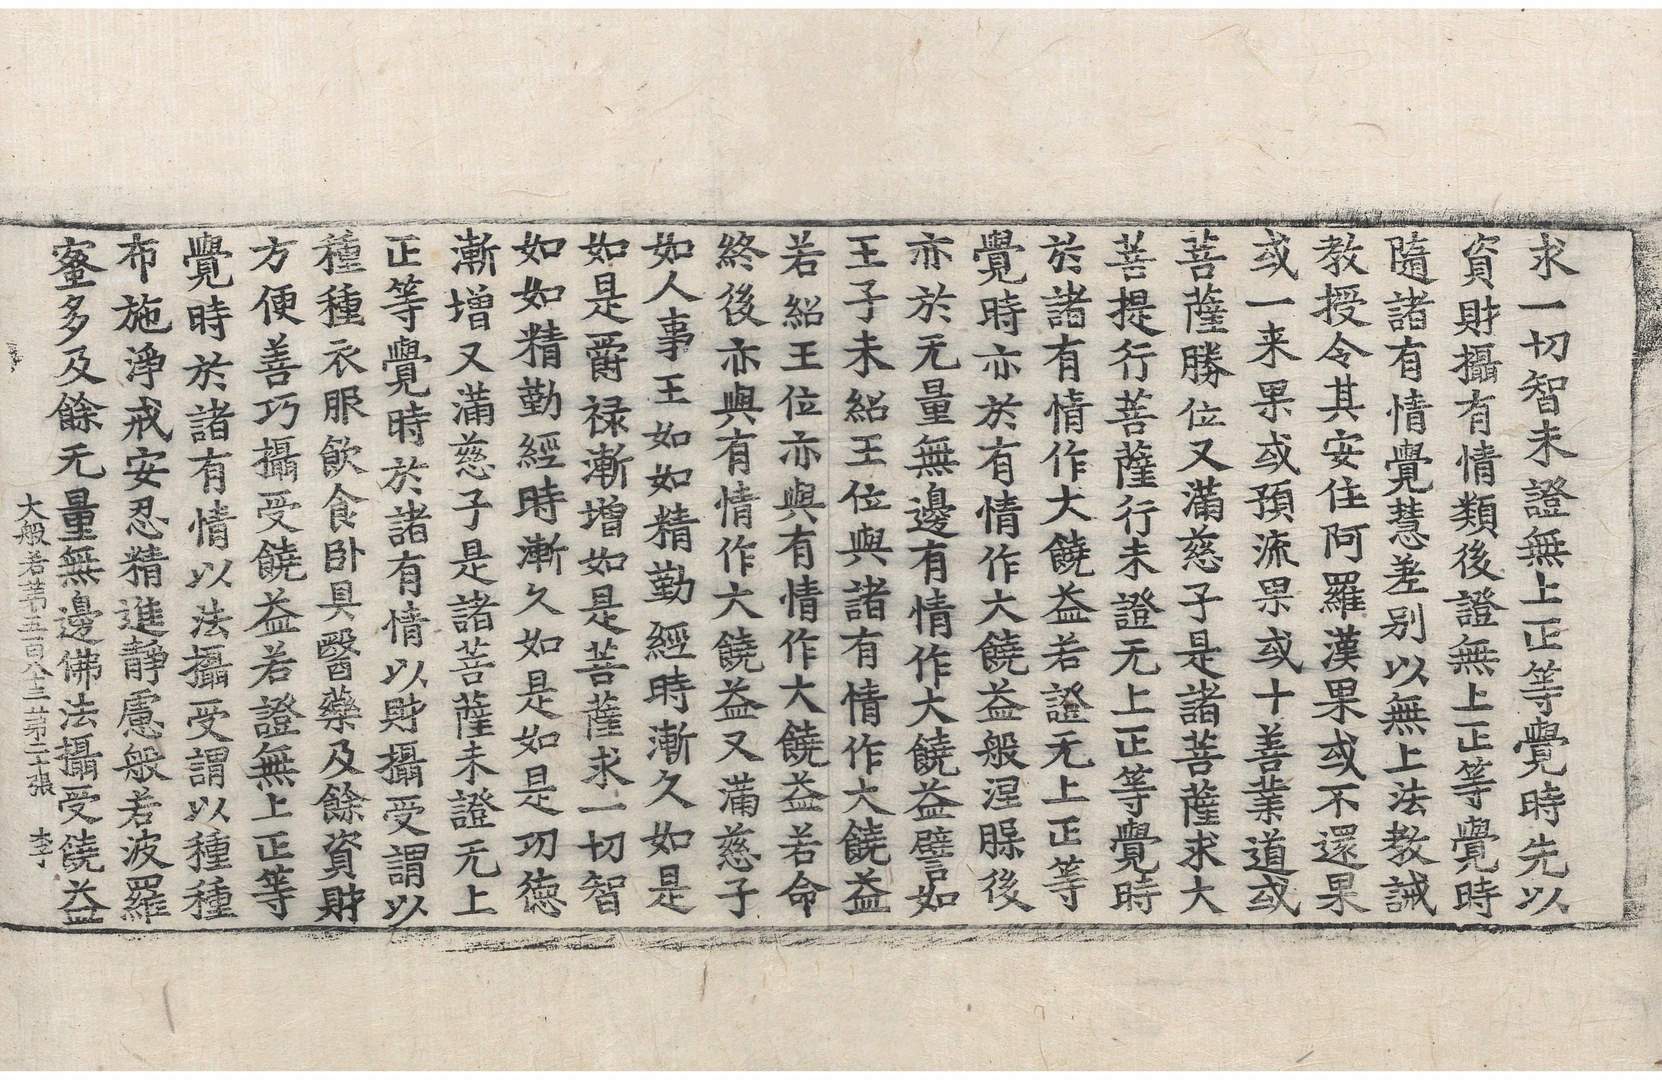 求一切智未證無上正等覺時先以
資財攝有情類後證無上正等覺時
隨諸有情覺慧差别以無上法教誡
教授令其安住阿羅漢果或不還果
或一来果或預流果或十善業道或
菩薩勝位又滿慈子是諸菩薩求大
菩提行菩薩行未證无上正等覺時
於諸有情作大饒益若證无上正等
覺時亦於有情作大饒益般涅槃後
亦於无量無邊有情作大饒益譬如
王子未紹王位與諸有情作大饒益
若紹王位亦與有情作大饒益若命
終後亦與有情作大饒益又滿慈子
如人事王如如精勤經時漸久如是
如是爵禄漸增如是菩薩求一切智
如如精勤經時漸久如是如是功德
漸增又滿慈子是諸菩薩未證无上
正等覺時於諸有情以財攝受謂以
種種衣服飲食卧具醫藥及餘資財
方便善巧攝受饒益若證無上正等
覺時於諸有情以法攝受謂以種種
布施淨戒安忍精進靜慮般若波羅
蜜多及餘无量無邊佛法攝受饒益
大般若苐五百八十三苐二十張 李丁